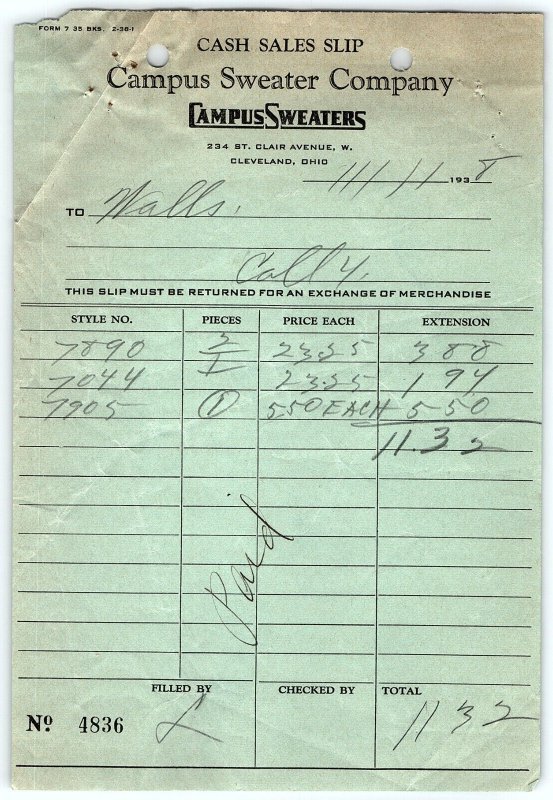 FORM 7 35 BKS. 2-38-1
CASH SALES SLIP
Campus Sweater Company
CAMPUS SWEATERS
234 ST. CLAIR AVENUE, W.
CLEVELAND, OHIO
11/11 1938
TO Walls.
THIS SLIP MUST BE RETURNED FOR AN EXCHANGE OF MERCHANDISE
STYLE NO. PIECES PRICE EACH EXTENSION
7890 2325 3 88
7044 1 2325 1 94
7905 1 550 EACH 5 50
11.32
Paid
FILLED BY CHECKED BY TOTAL
No 4836 L 11 32